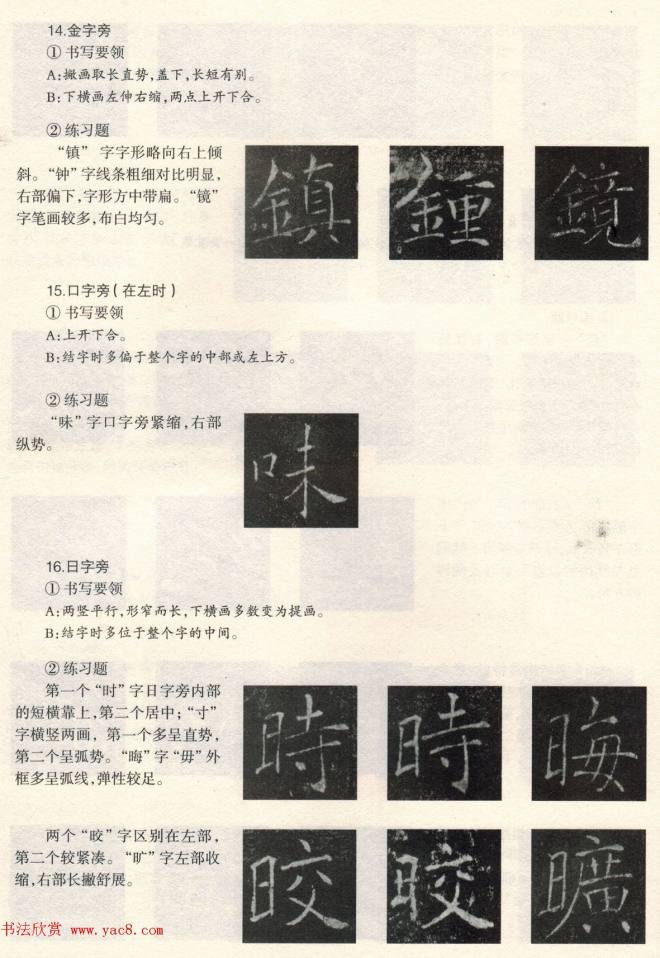 14.金字旁
① 书写要领
A:撇画取长直势,盖下,长短有别。
B:下横画左伸右缩,两点上开下合。
② 练习题
“镇” 字字形略向右上倾
斜。“钟”字线条粗细对比明显,
右部偏下,字形方中带扁。“镜”
字笔画较多,布白均匀。
鎮 鍾 鏡
15.口字旁(在左时)
① 书写要领
A:上开下合。
B:结字时多偏于整个字的中部或左上方。
② 练习题
“味”字口字旁紧缩,右部
纵势。
味
16.日字旁
① 书写要领
A:两竖平行,形窄而长,下横画多数变为提画。
B:结字时多位于整个字的中间。
② 练习题
第一个“时”字日字旁内部
的短横靠上,第二个居中;“寸”
字横竖两画,第一个多呈直势,
第二个呈弧势。“晦”字“毋”外
框多呈弧线,弹性较足。
時 時 晦
两个“晈”字区别在左部,
第二个较紧凑。“旷”字左部收
缩,右部长撇舒展。
晈 晈 曠
书法欣赏 www.yac8.com